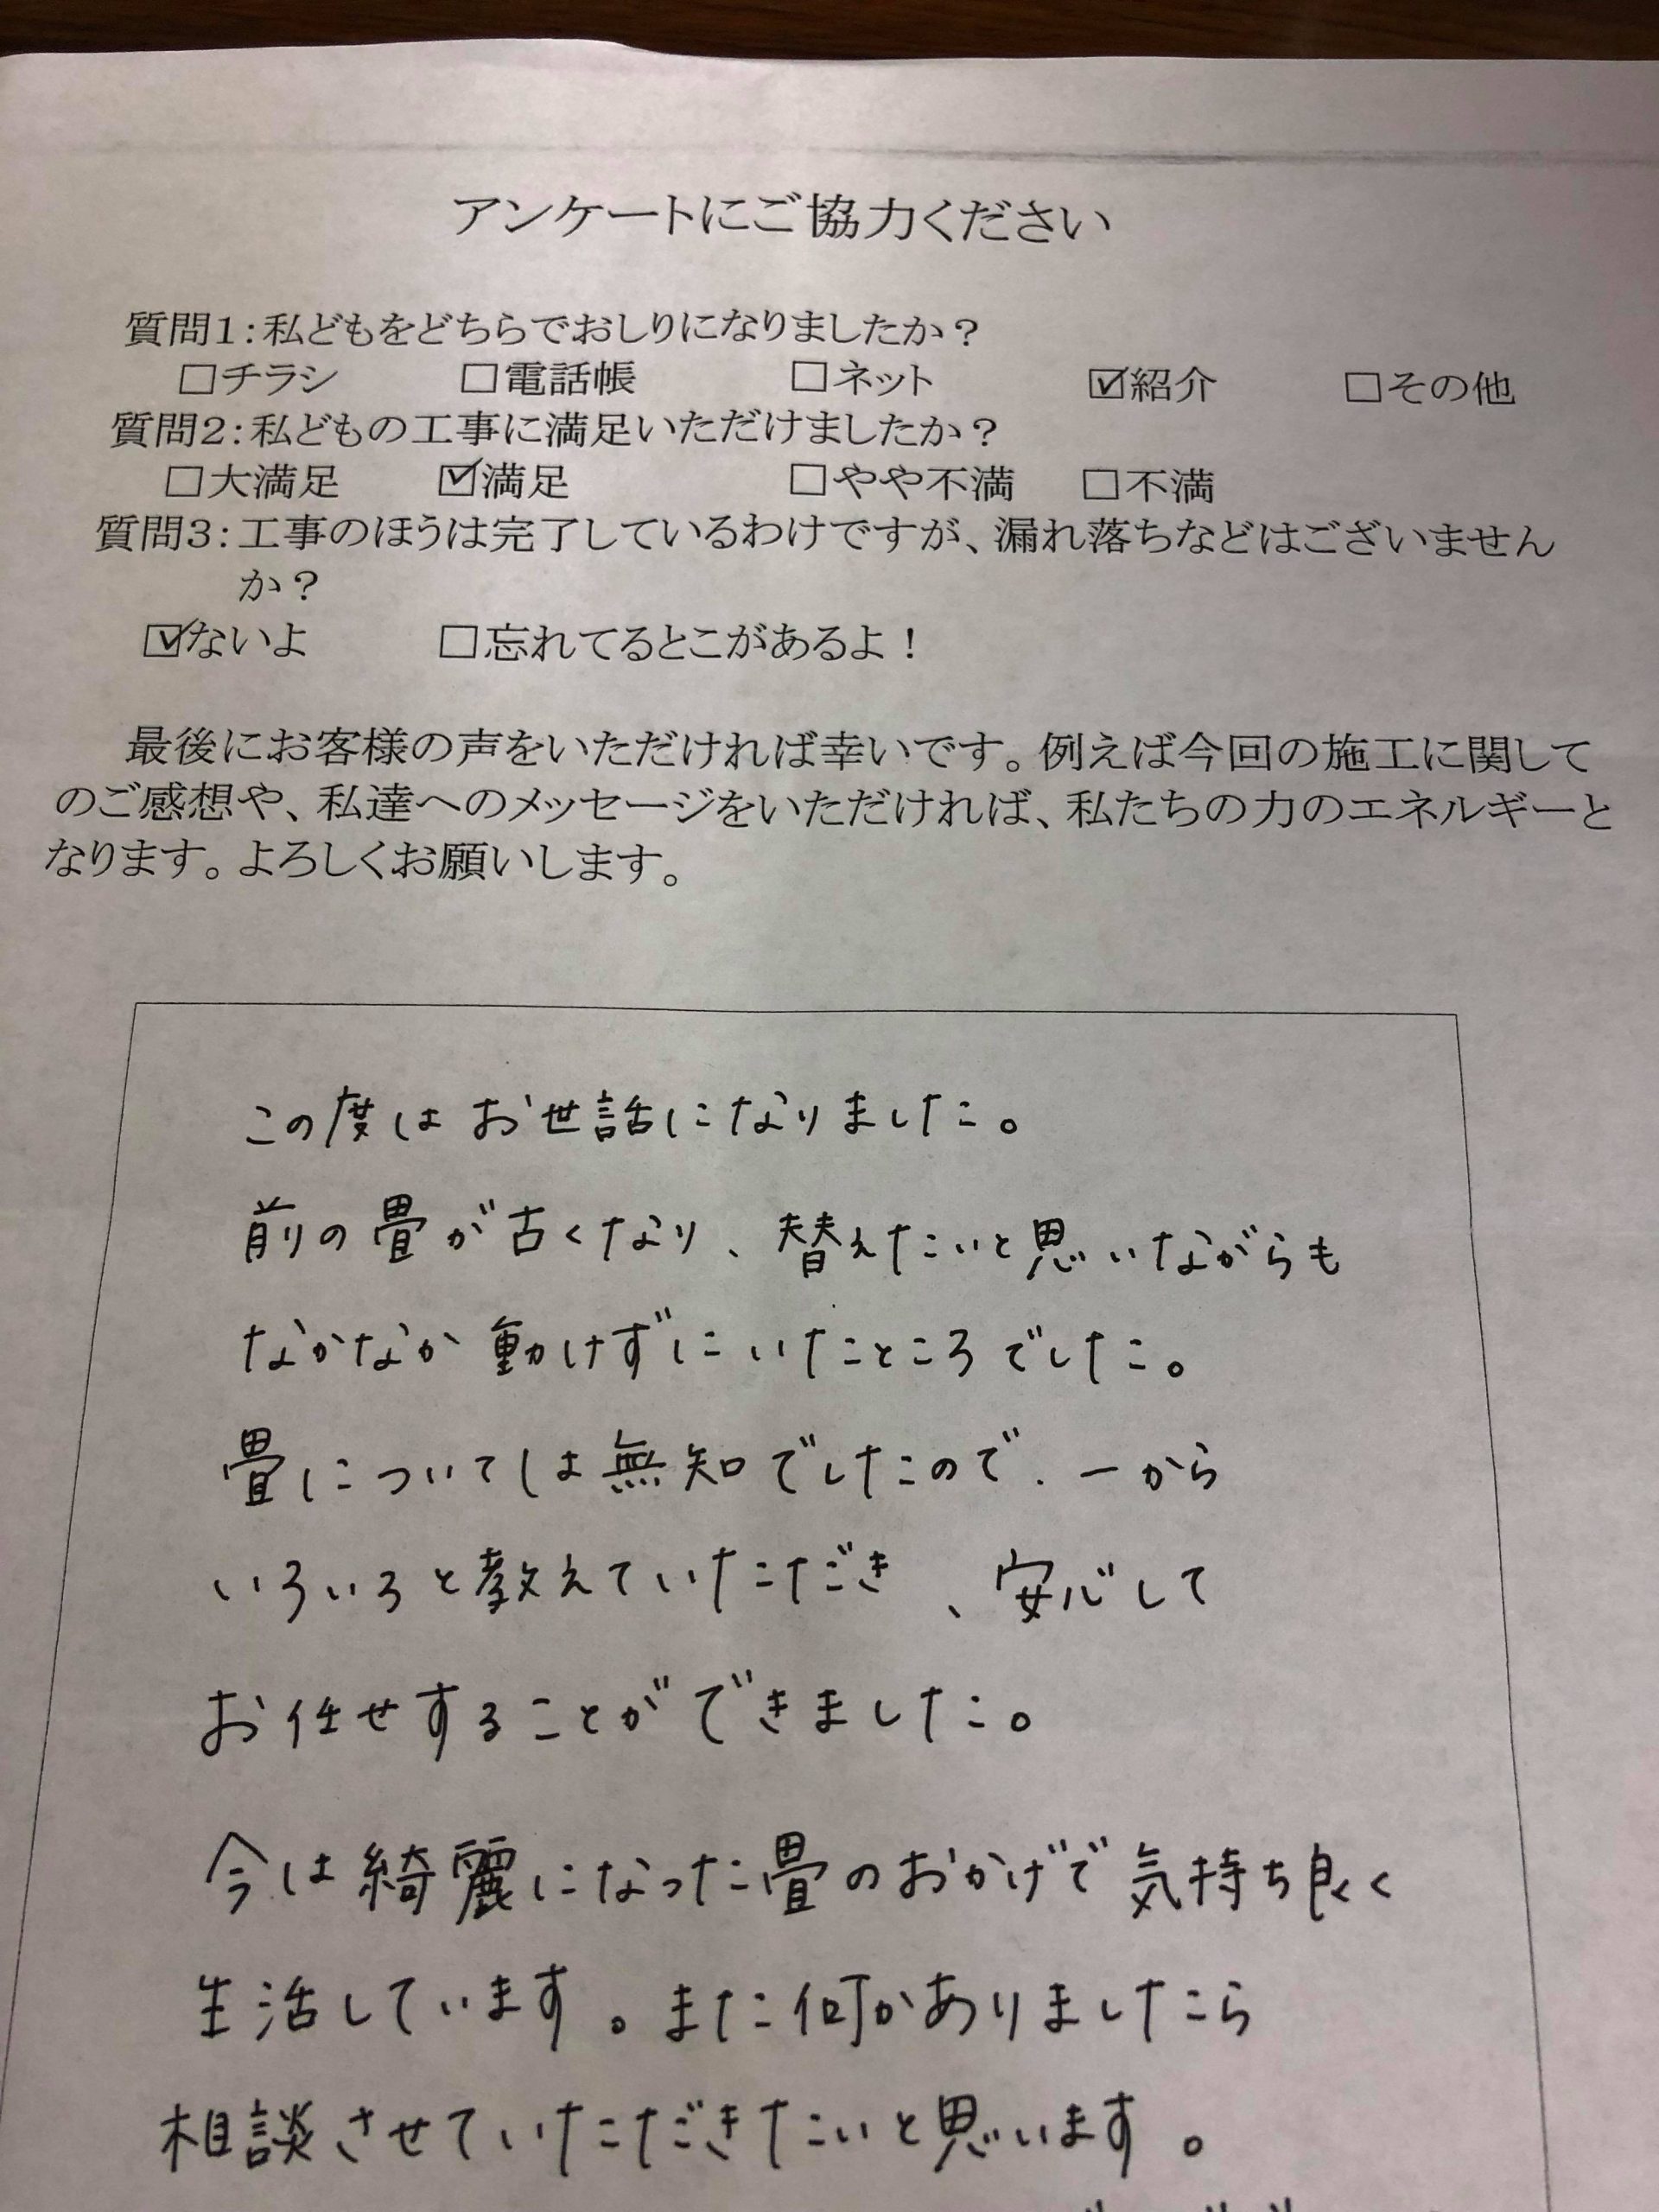 アンケートにご協力ください
質問1:私どもをどちらでおしりになりましたか？
□チラシ □電話帳 □ネット ☑紹介 □その他
質問2:私どもの工事に満足いただけましたか？
□大満足 ☑満足 □やや不満 □不満
質問3:工事のほうは完了しているわけですが、漏れ落ちなどはございません
か？
☑ないよ □忘れてるとこがあるよ！
最後にお客様の声をいただければ幸いです。例えば今回の施工に関して
のご感想や、私達へのメッセージをいただければ、私たちの力のエネルギーと
なります。よろしくお願いします。
この度はお世話になりました。
前の畳が古くなり、替えたいと思いながらも
なかなか動けずにいたところでした。
畳については無知でしたので、一から
いろいろと教えていただき、安心して
お任せすることができました。
今は綺麗になった畳のおかげで気持ち良く
生活しています。また何かありましたら
相談させていただきたいと思います。